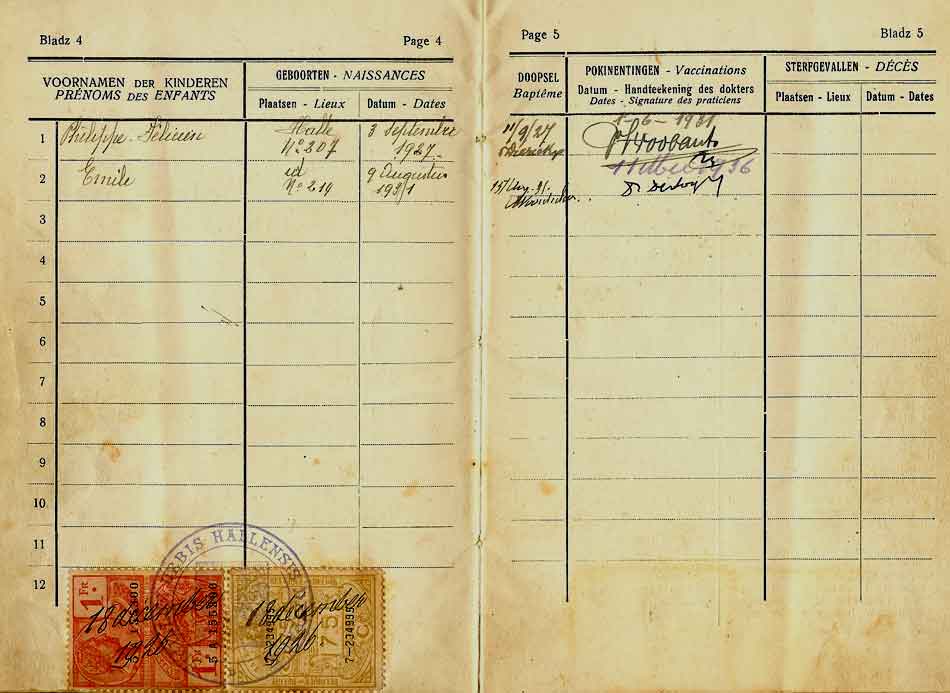 Bladz 4
Page 4
VOORNAMEN DER KINDEREN
PRÉNOMS DES ENFANTS
GEBOORTEN - NAISSANCES
Plaatsen - Lieux
Datum - Dates
1
Philippe-Félicien
Halle
N° 207
3 Septembre
1927
2
Emile
id
N° 219
9 Augustus
1931
3
4
5
6
7
8
9
10
11
12
URBIS HALLENSIS
1 Fr
18 december
1926
18 december
1926
75
Page 5
Bladz 5
DOOPSEL
Baptême
POKINENTINGEN - Vaccinations
Datum - Handteekening des dokters
Dates - Signature des praticiens
STERFGEVALLEN - DÉCÈS
Plaatsen - Lieux
Datum - Dates
11/9/27
1-6-1931